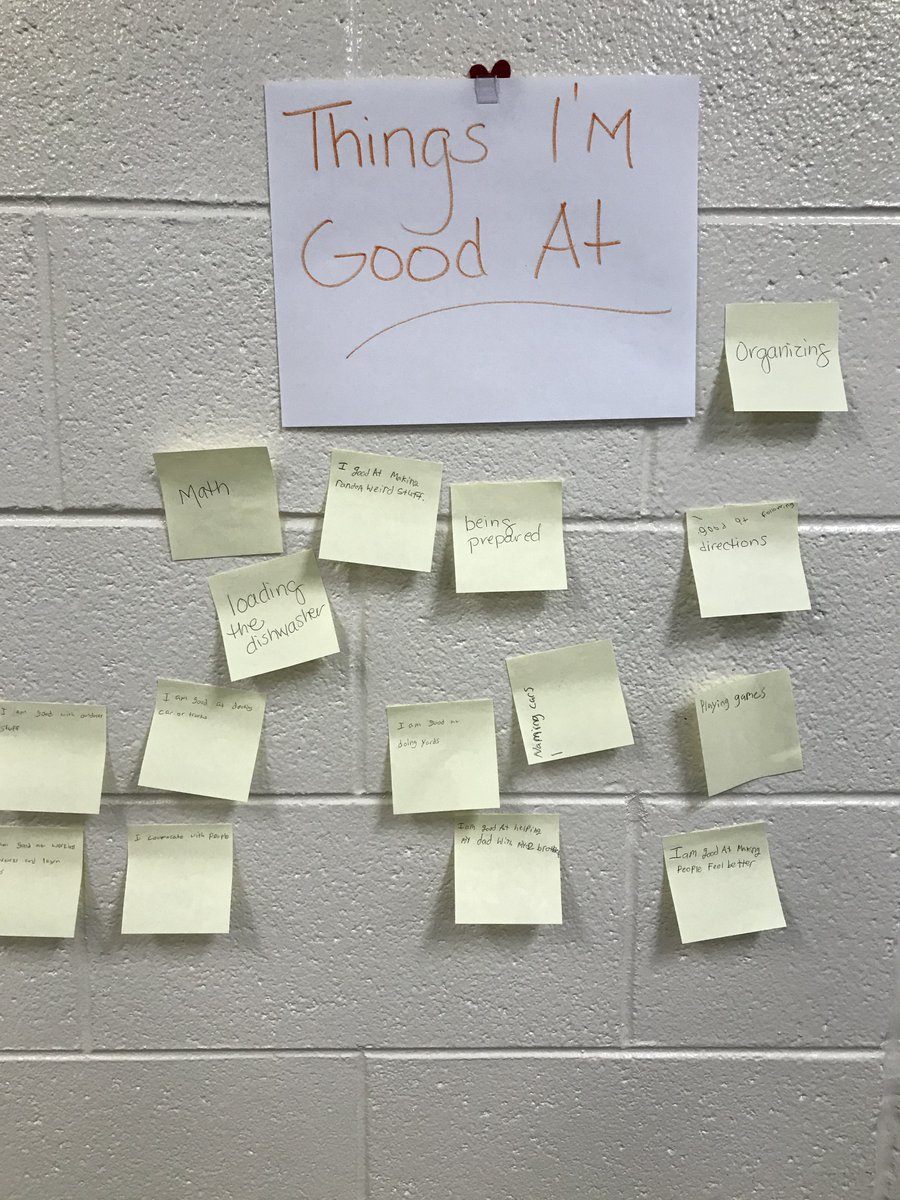 Things I'm
Good At
Organizing
Math
I good At Making
weird stuff.
being
prepared
I good at following
directions
loading
the
dishwasher
I am good with outdoor
stuff
I am good at
car or trucks
I am good at
doing yards
Naming cars
Playing games
am good at
and lawn
I with People
I am good At helping
My dad With
I am good At Making
People Feel better